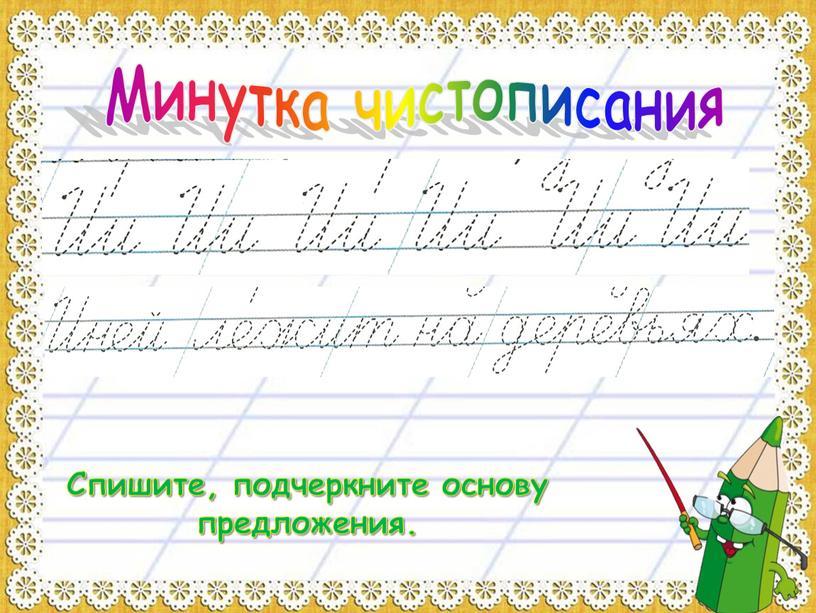 Минутка чистописания
Ии Ии Ии Ии Ии Ии
Иней лежит на деревьях.
Спишите, подчеркните основу
предложения.